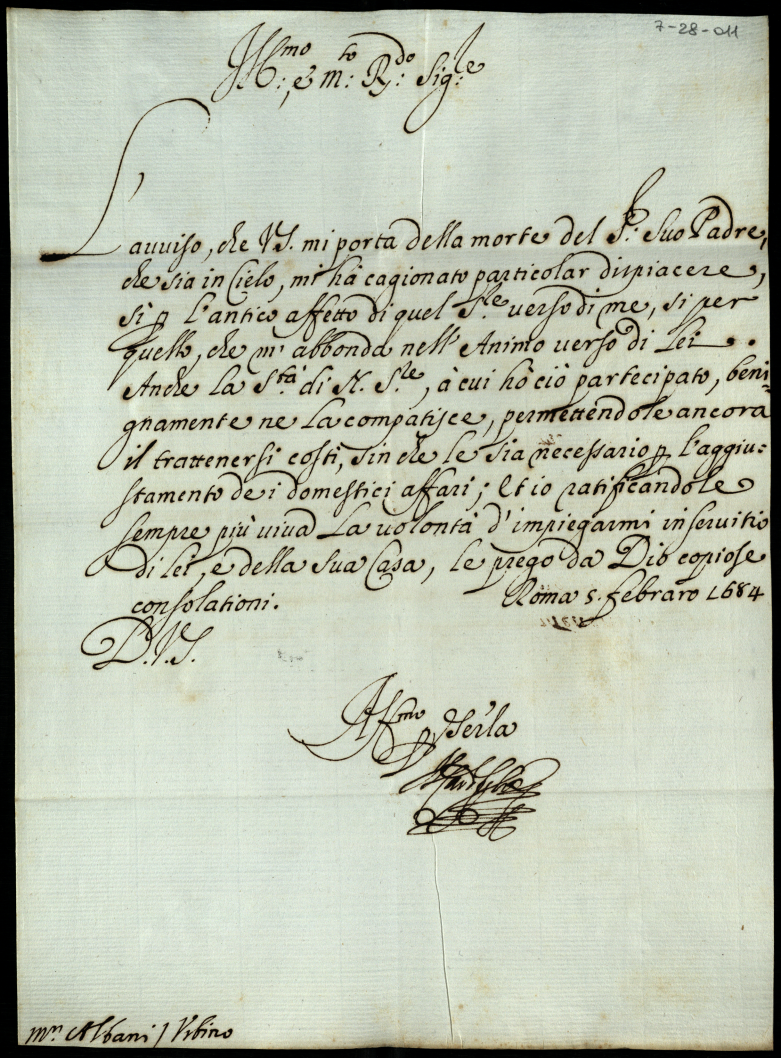 7-28-011
Ill.mo, e m.to R.do Sig.re
L'avviso, che V.S. mi porta della morte del S.r Suo Padre,
che sia in Cielo, mi hà cagionato particolar dispiacere,
sì p l'antico affetto di quel S.re verso di me, si per
quello, che m'abbonda nell'Animo verso di Lei.
Anche la S.tà di N. S.re, à cui hò ciò partecipato, beni=
gnamente ne La compatisce, permettendole ancora
il trattenersi costì, sin che le sia necessario p l'aggiu=
stamento de i domestici affari; Et io ratificandole
sempre più viva La volontà d'impiegarmi in servitio
di Lei, e della Sua Casa, le prego da Dio copiose
consolationi. Roma 5. febraro 1684
D. V. S.
Aff.mo p ser.la
m.r Albani / Urbino